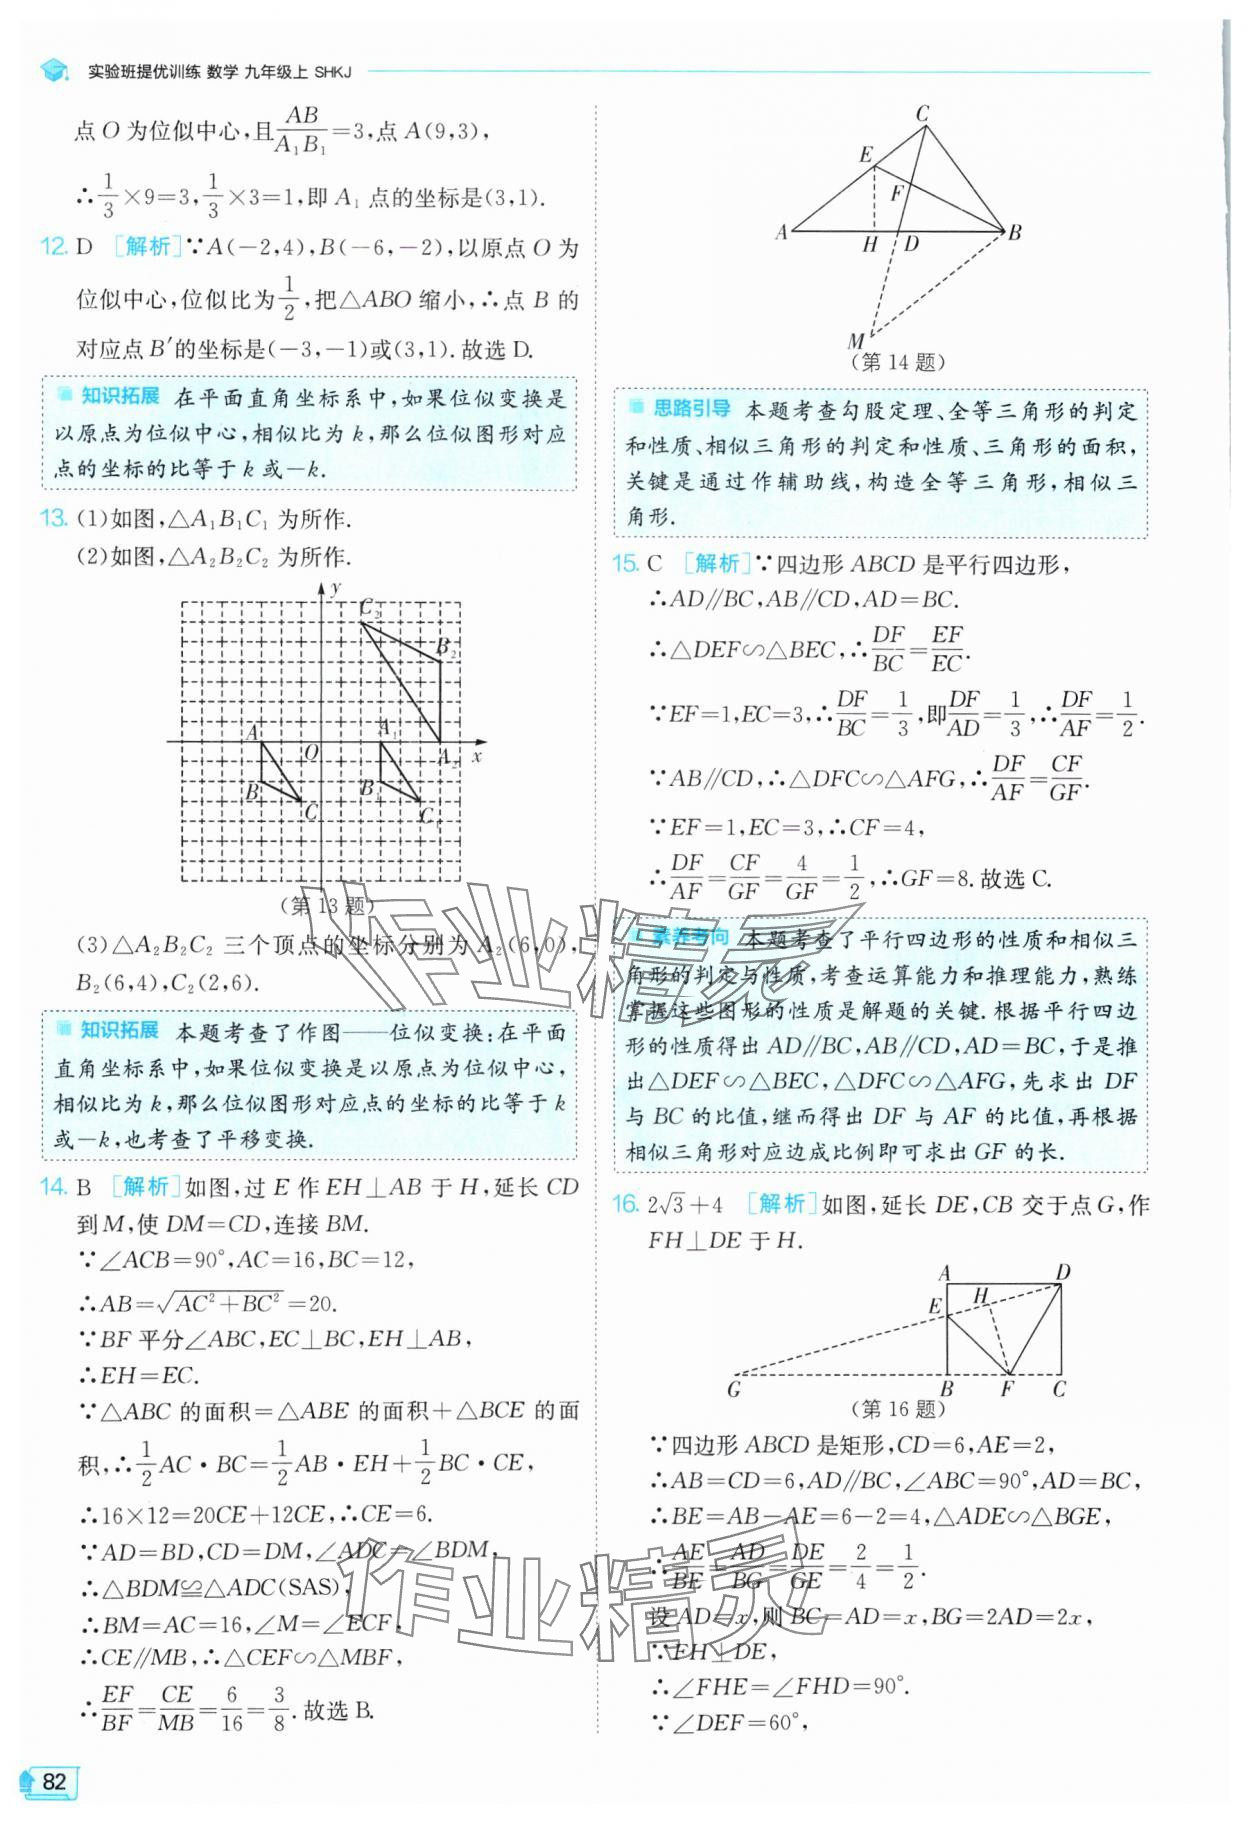 实验班提优训练 数学 九年级上 SHKJ
点O为位似中心,且AB/A₁B₁=3,点A(9,3),
∴1/3×9=3,1/3×3=1,即A₁点的坐标是(3,1).
12. D [解析]∵A(-2,4),B(-6,-2),以原点O为
位似中心,位似比为1/2,把△ABO缩小,∴点B的
对应点B′的坐标是(-3,-1)或(3,1).故选D.
知识拓展 在平面直角坐标系中,如果位似变换是
以原点为位似中心,相似比为k,那么位似图形对应
点的坐标的比等于k或-k.
13. (1)如图,△A₁B₁C₁为所作.
(2)如图,△A₂B₂C₂为所作.
y
C₂
B₂
A
O
A₁
A₂
x
B
C
B₁
C₁
(第13题)
(3)△A₂B₂C₂三个顶点的坐标分别为A₂(6,0),
B₂(6,4),C₂(2,6).
知识拓展 本题考查了作图——位似变换:在平面
直角坐标系中,如果位似变换是以原点为位似中心,
相似比为k,那么位似图形对应点的坐标的比等于k
或-k,也考查了平移变换.
14. B [解析]如图,过E作EH⊥AB于H,延长CD
到M,使DM=CD,连接BM.
∵∠ACB=90°,AC=16,BC=12,
∴AB=√(AC²+BC²)=20.
∵BF平分∠ABC,EC⊥BC,EH⊥AB,
∴EH=EC.
∵△ABC的面积=△ABE的面积+△BCE的面
积,∴1/2AC·BC=1/2AB·EH+1/2BC·CE,
∴16×12=20CE+12CE,∴CE=6.
∵AD=BD,CD=DM,∠ADC=∠BDM,
∴△BDM≌△ADC(SAS),
∴BM=AC=16,∠M=∠ECF,
∴CE∥MB,∴△CEF∽△MBF,
∴EF/BF=CE/MB=6/16=3/8.故选B.
82
C
E
F
A
H
D
B
M
(第14题)
思路引导 本题考查勾股定理、全等三角形的判定
和性质、相似三角形的判定和性质、三角形的面积,
关键是通过作辅助线,构造全等三角形,相似三
角形.
15. C [解析]∵四边形ABCD是平行四边形,
∴AD∥BC,AB∥CD,AD=BC.
∴△DEF∽△BEC,∴DF/BC=EF/EC.
∵EF=1,EC=3,∴DF/BC=1/3,即DF/AD=1/3,∴DF/AF=1/2.
∵AB∥CD,∴△DFC∽△AFG,∴DF/AF=CF/GF.
∵EF=1,EC=3,∴CF=4,
∴DF/AF=CF/GF=4/GF=1/2,∴GF=8.故选C.
素养考向 本题考查了平行四边形的性质和相似三
角形的判定与性质,考查运算能力和推理能力,熟练
掌握这些图形的性质是解题的关键.根据平行四边
形的性质得出AD∥BC,AB∥CD,AD=BC,于是推
出△DEF∽△BEC,△DFC∽△AFG,先求出DF
与BC的比值,继而得出DF与AF的比值,再根据
相似三角形对应边成比例即可求出GF的长.
16. 2√3+4 [解析]如图,延长DE,CB交于点G,作
FH⊥DE于H.
A
D
H
E
G
B
F
C
(第16题)
∵四边形ABCD是矩形,CD=6,AE=2,
∴AB=CD=6,AD∥BC,∠ABC=90°,AD=BC,
∴BE=AB-AE=6-2=4,△ADE∽△BGE,
∴AE/BE=AD/BG=DE/GE=2/4=1/2.
设AD=x,则BC=AD=x,BG=2AD=2x,
∵FH⊥DE,
∴∠FHE=∠FHD=90°.
∵∠DEF=60°,
作业精灵
作业精灵